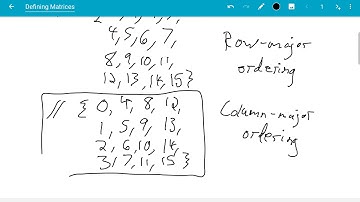 Defining Matrices
4,5,6,7,
8,9,10,11,
12,13,14,15}
Row-major
ordering
// { 0, 4, 8, 12,
1, 5, 9, 13,
2, 6, 10, 14,
3, 7, 11, 15 }
Column-major
ordering